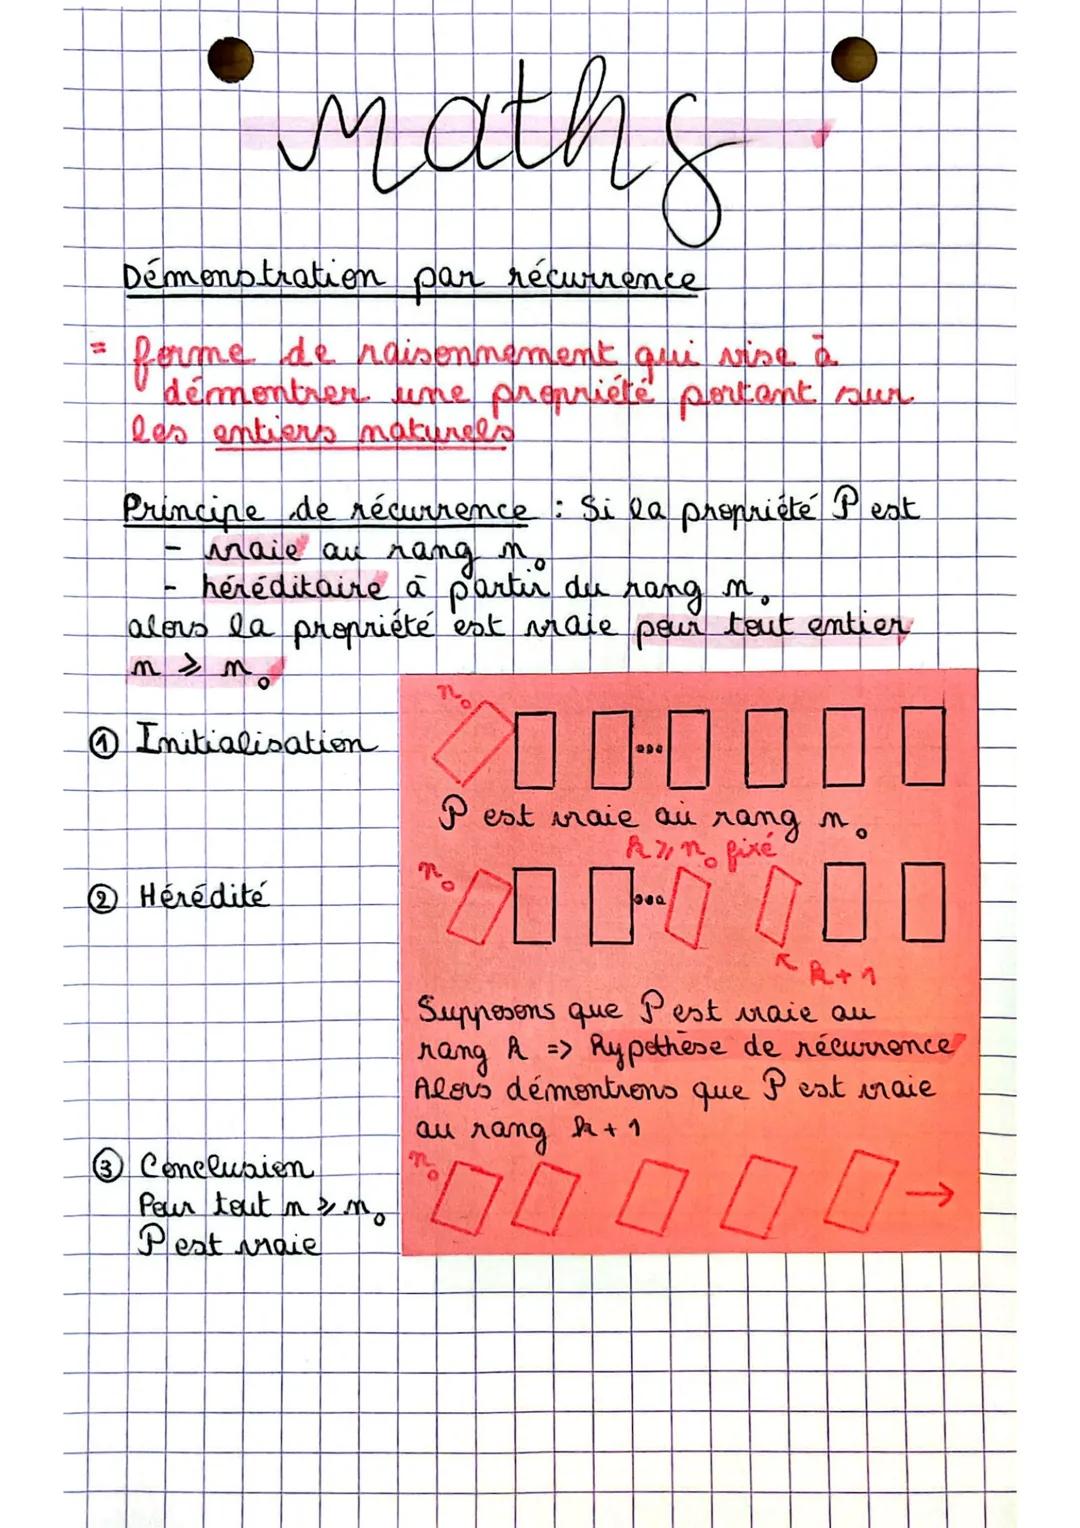 maths
Démonstration par récurrence
= forme de raisonnement qui vise à
démontrer une propriété portant sur
les entiers naturels
Principe de récurrence : Si la propriété P est
- vraie au rang n₀
- héréditaire à partir du rang n₀
alors la propriété est vraie pour tout entier
n ⩾ n₀
① Initialisation
n₀
...
P est vraie au rang n₀
k ⩾ n₀ fixé
② Hérédité
n₀
...
k+1
Supposons que P est vraie au
rang k => Hypothèse de récurrence
Alors démontrons que P est vraie
au rang k+1
③ Conclusion
Pour tout n ⩾ n₀
P est vraie
n₀